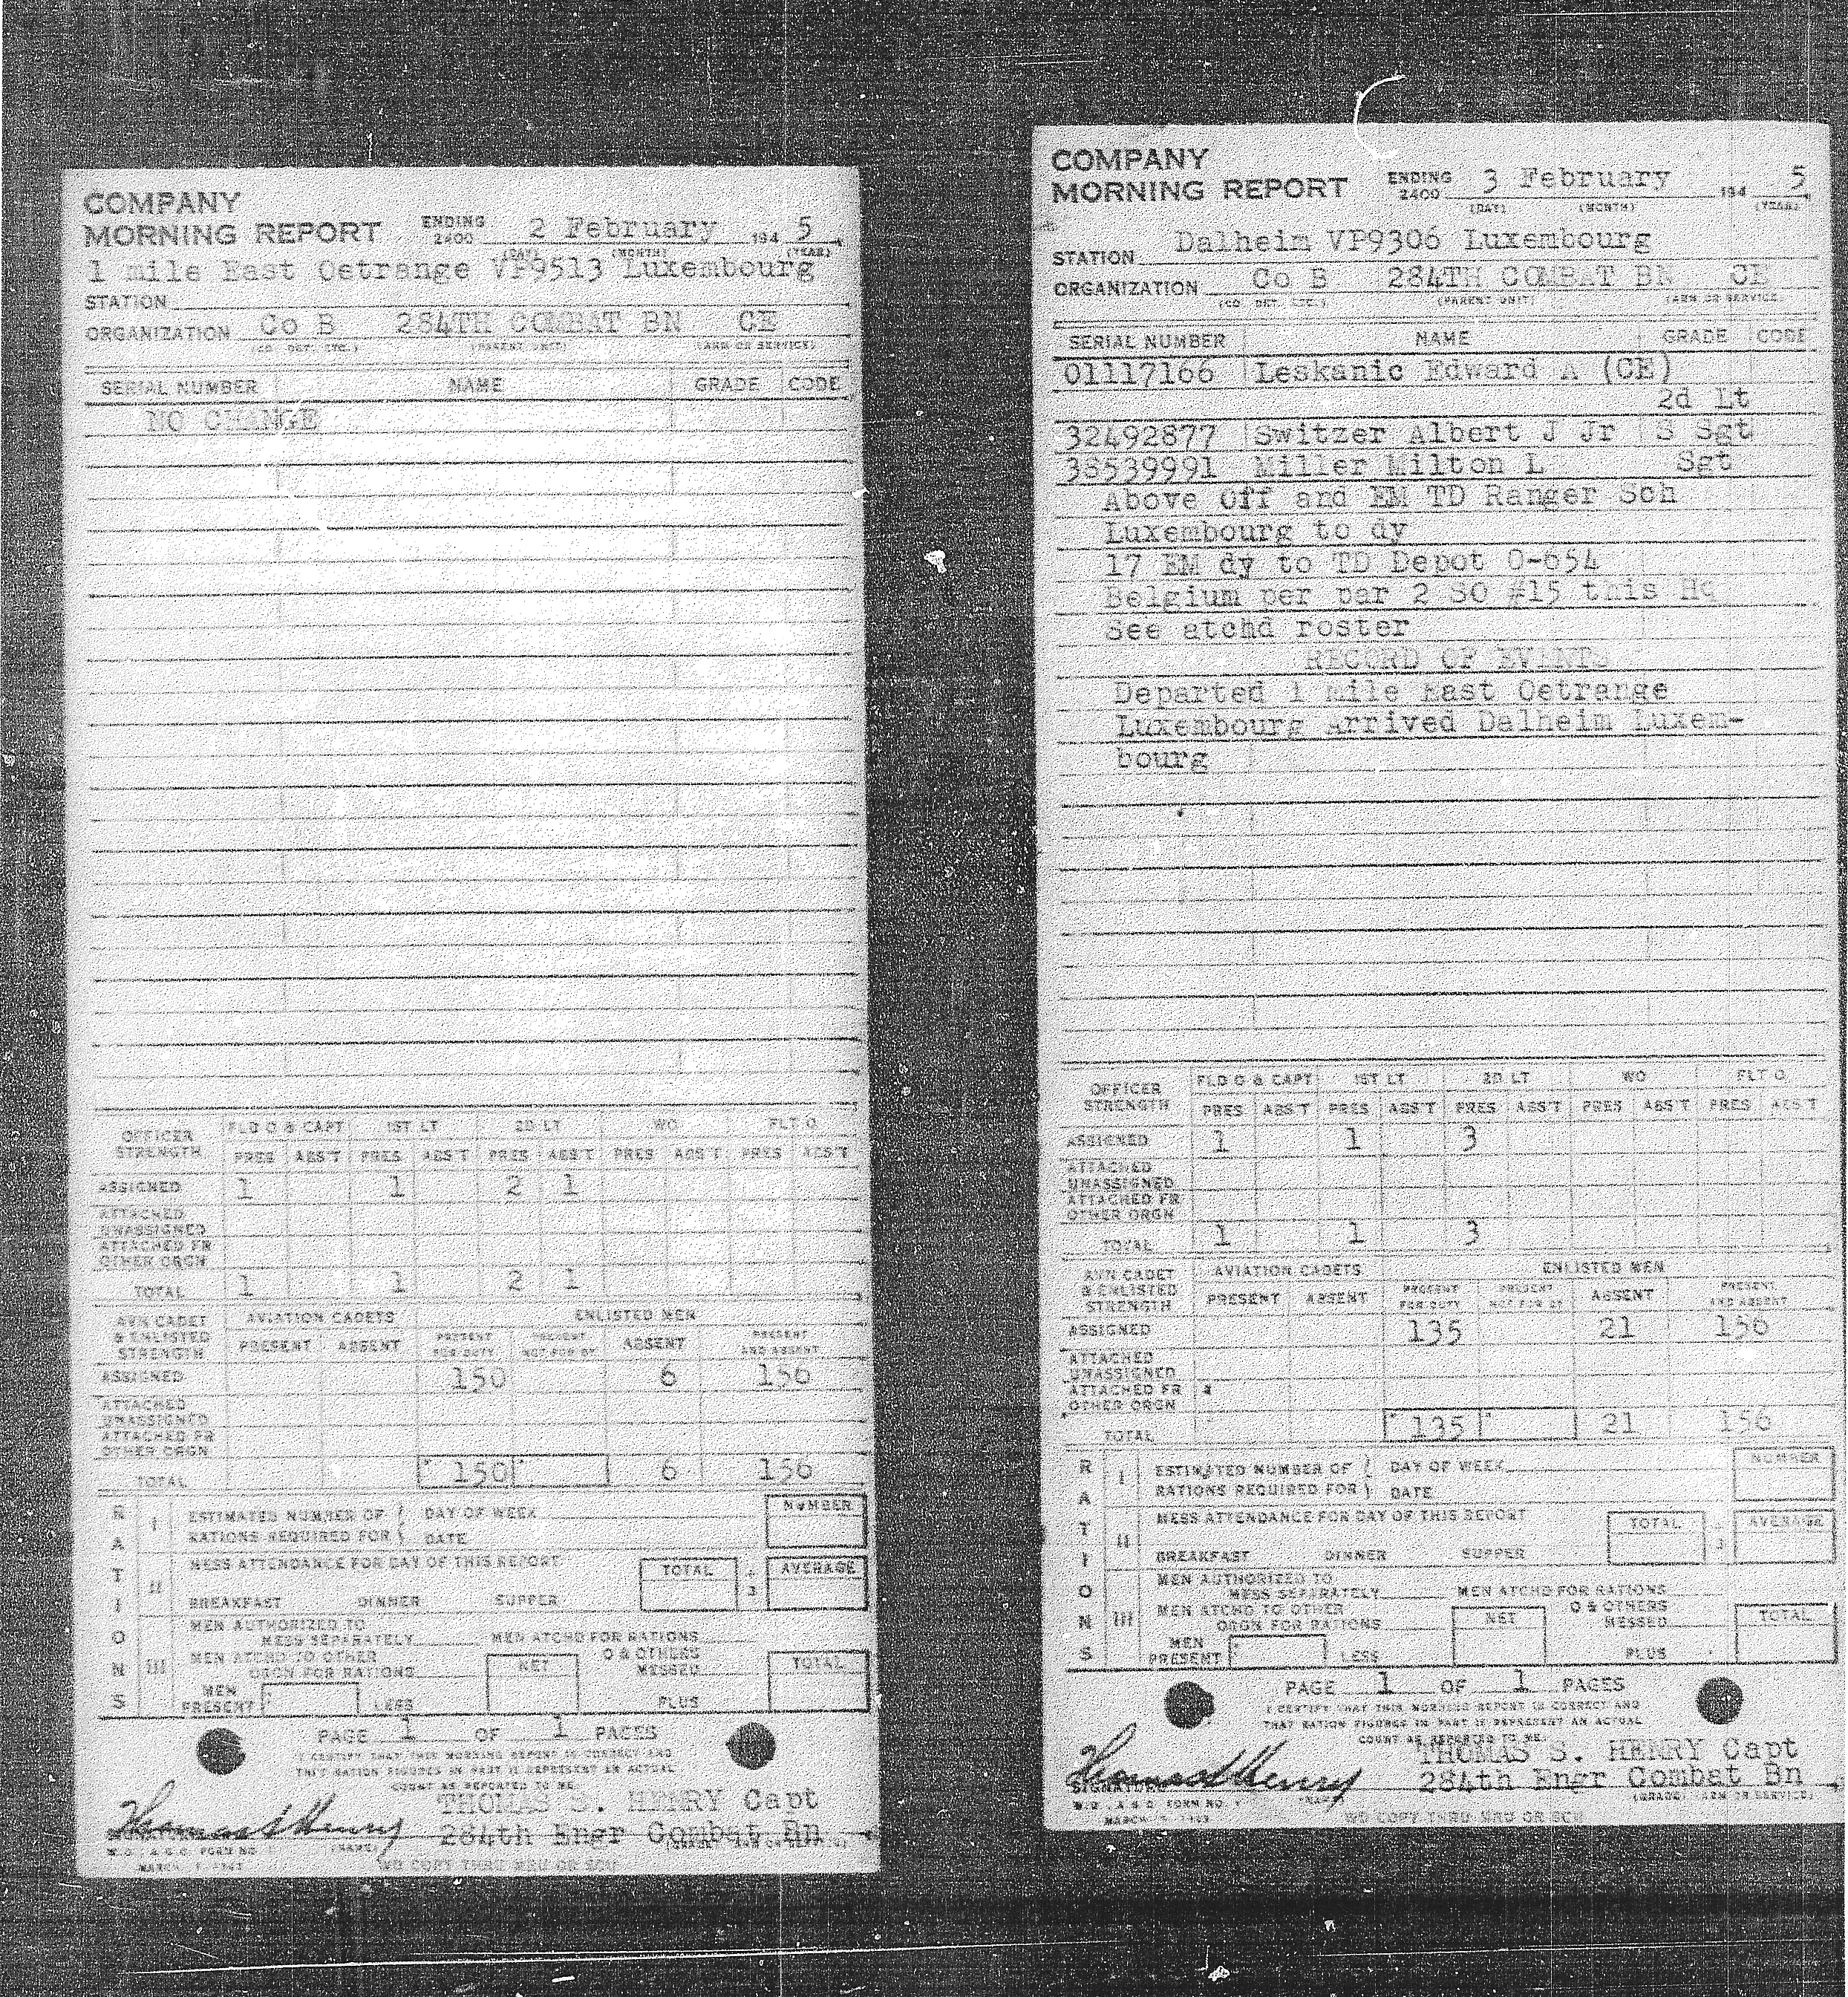 COMPANY
MORNING REPORT ENDING 2400 2 February 194 5
(DAY) (MONTH) (YEAR)
1 mile East Oetrange VP9513 Luxembourg
STATION
ORGANIZATION Co B 284TH COMBAT BN CE
(CO. DET. ETC.) (PARENT UNIT) (ARM OR SERVICE)
SERIAL NUMBER NAME GRADE CODE
NO CHANGE
OFFICER STRENGTH FLD O & CAPT 1ST LT 2D LT WO FLT O
PRES ABS'T PRES ABS'T PRES ABS'T PRES ABS'T PRES ABS'T
ASSIGNED 1 1 2 1
ATTACHED
UNASSIGNED
ATTACHED FR
OTHER ORGN
TOTAL 1 1 2 1
AVN CADET & ENLISTED STRENGTH AVIATION CADETS ENLISTED MEN
PRESENT ABSENT PRESENT FOR DUTY PRESENT NOT FOR DY ABSENT PRESENT AND ABSENT
ASSIGNED 150 6 156
ATTACHED
UNASSIGNED
ATTACHED FR
OTHER ORGN
TOTAL 150 6 156
RATIONS
I ESTIMATED NUMBER OF DAY OF WEEK NUMBER
RATIONS REQUIRED FOR DATE
II MESS ATTENDANCE FOR DAY OF THIS REPORT TOTAL ÷ 3 AVERAGE
BREAKFAST DINNER SUPPER
III MEN AUTHORIZED TO
MESS SEPARATELY MEN ATCHD FOR RATIONS
MEN ATCHD TO OTHER
ORGN FOR RATIONS NET O & OTHERS MESSED TOTAL
MEN PRESENT LESS PLUS
PAGE 1 OF 1 PAGES
I CERTIFY THAT THIS MORNING REPORT IS CORRECT AND
THAT RATION FIGURES IN PART II REPRESENT AN ACTUAL
COUNT AS REPORTED TO ME.
Thomas S Henry THOMAS S. HENRY Capt
SIGNATURE 284th Engr Combat Bn
W.D., A.G.O. FORM NO. 1 (NAME)
MARCH 1943 WD COPY THRU MRU OR SCU
COMPANY
MORNING REPORT ENDING 2400 3 February 194 5
(DAY) (MONTH) (YEAR)
STATION Dalheim VP9306 Luxembourg
ORGANIZATION Co B 284TH COMBAT BN CE
(CO. DET. ETC.) (PARENT UNIT) (ARM OR SERVICE)
SERIAL NUMBER NAME GRADE CODE
01117166 Leskanic Edward A (CE)
2d Lt
32492877 Switzer Albert J Jr S Sgt
38539991 Miller Milton L Sgt
Above Off and EM TD Ranger Sch
Luxembourg to dy
17 EM dy to TD Depot O-654
Belgium per par 2 SO #15 this Hq
See atchd roster
RECORD OF EVENTS
Departed 1 mile East Oetrange
Luxembourg Arrived Dalheim Luxem-
bourg
OFFICER STRENGTH FLD O & CAPT 1ST LT 2D LT WO FLT O
PRES ABS'T PRES ABS'T PRES ABS'T PRES ABS'T PRES ABS'T
ASSIGNED 1 1 3
ATTACHED
UNASSIGNED
ATTACHED FR
OTHER ORGN
TOTAL 1 1 3
AVN CADET & ENLISTED STRENGTH AVIATION CADETS ENLISTED MEN
PRESENT ABSENT PRESENT FOR DUTY PRESENT NOT FOR DY ABSENT PRESENT AND ABSENT
ASSIGNED 135 21 156
ATTACHED
UNASSIGNED
ATTACHED FR
OTHER ORGN
TOTAL 135 21 156
RATIONS
I ESTIMATED NUMBER OF DAY OF WEEK NUMBER
RATIONS REQUIRED FOR DATE
II MESS ATTENDANCE FOR DAY OF THIS REPORT TOTAL ÷ 3 AVERAGE
BREAKFAST DINNER SUPPER
III MEN AUTHORIZED TO
MESS SEPARATELY MEN ATCHD FOR RATIONS
MEN ATCHD TO OTHER
ORGN FOR RATIONS NET O & OTHERS MESSED TOTAL
MEN PRESENT LESS PLUS
PAGE 1 OF 1 PAGES
I CERTIFY THAT THIS MORNING REPORT IS CORRECT AND
THAT RATION FIGURES IN PART II REPRESENT AN ACTUAL
COUNT AS REPORTED TO ME.
Thomas S Henry THOMAS S. HENRY Capt
SIGNATURE 284th Engr Combat Bn
W.D., A.G.O. FORM NO. 1 (NAME) (GRADE) (ARM OR SERVICE)
MARCH 1943 WD COPY THRU MRU OR SCU